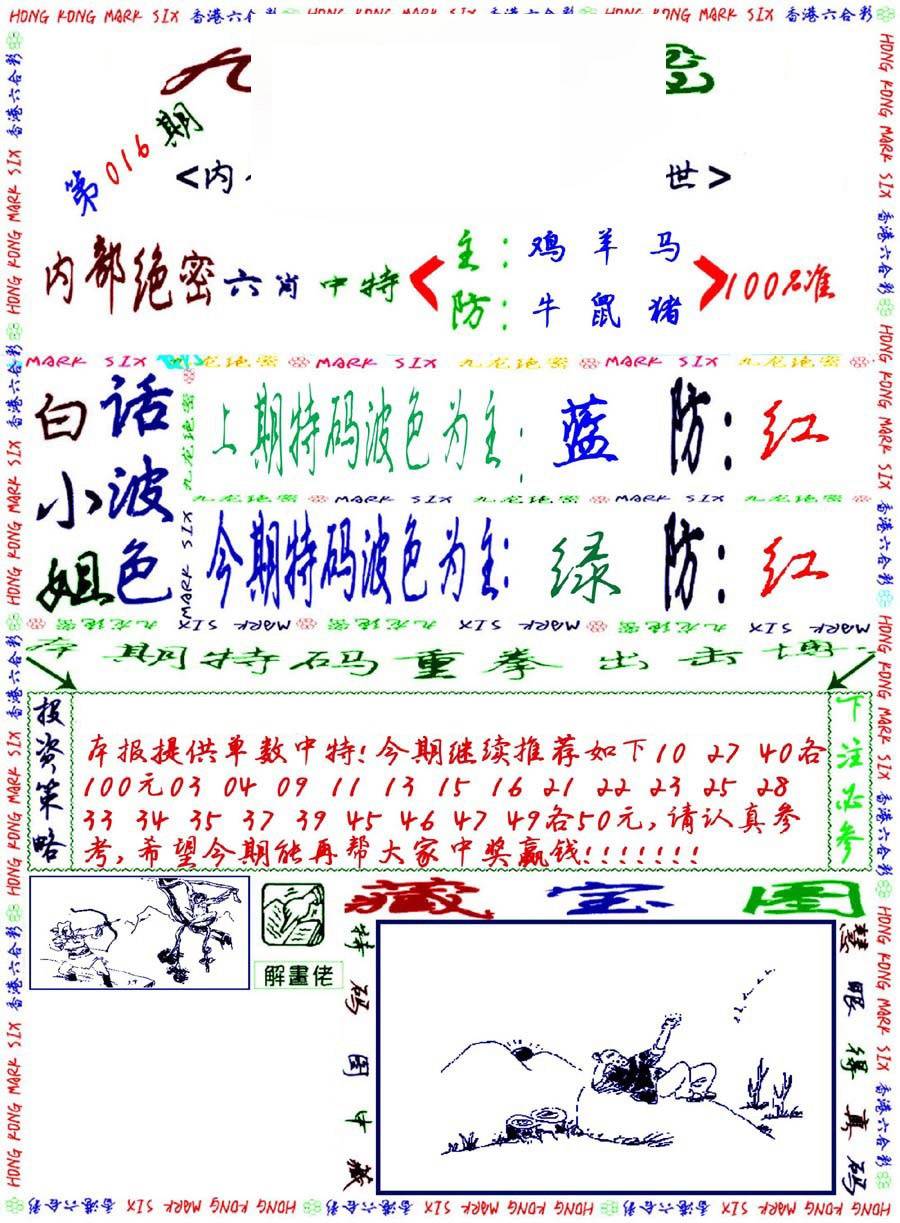 HONG KONG MARK SIX 香港六合彩 HONG KONG MARK SIX 香港六合彩 HONG KONG MARK SIX 香港六合彩
第016期
<内
世>
内部绝密六肖中特
主：鸡羊马
防：牛鼠猪
100%准
MARK SIX 九龙绝密 MARK SIX 九龙绝密 MARK SIX 九龙绝密
白话
小波
姐色
上期特码波色为主：蓝 防：红
九龙绝密 MARK SIX 九龙绝密 MARK SIX 九龙绝密
今期特码波色为主：绿 防：红
九龙绝密
MARK SIX
MARK SIX 九龙绝密 MARK SIX 九龙绝密 MARK SIX 九龙绝密
期特码重拳出击
投资策略
本报提供单数中特！今期继续推荐如下10 27 40各
100元03 04 09 11 13 15 16 21 22 23 25 28
33 34 35 37 39 45 46 47 49各50元,请认真参
考,希望今期能再帮大家中奖赢钱!!!!!!!
下注必参
藏宝图
解畫佬
特码图中藏
慧眼得真码
HONG KONG MARK SIX 香港六合彩 HONG KONG MARK SIX 香港六合彩 HONG KONG MARK SIX 香港六合彩